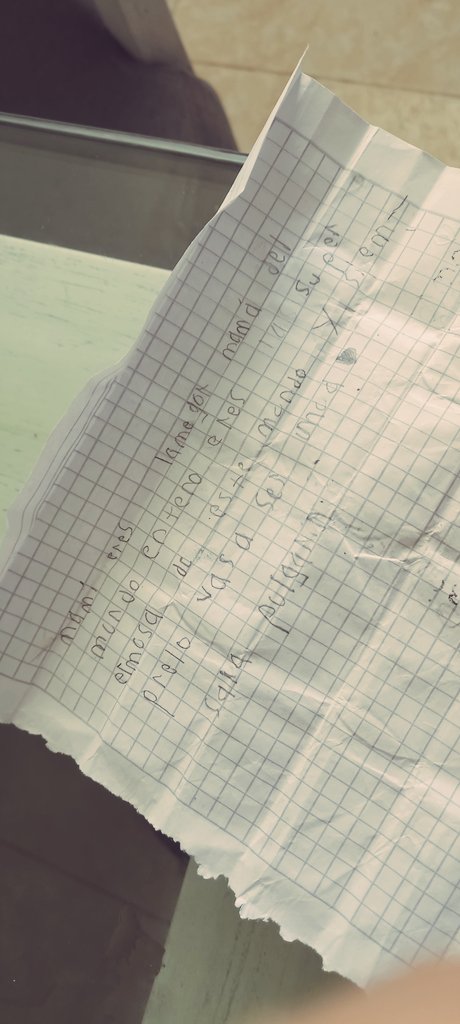 mamí eres lamegor mamá del
mondo entero eres la super
ermosa de este mondo X siempr
preto vas a ser inda
pulgarin